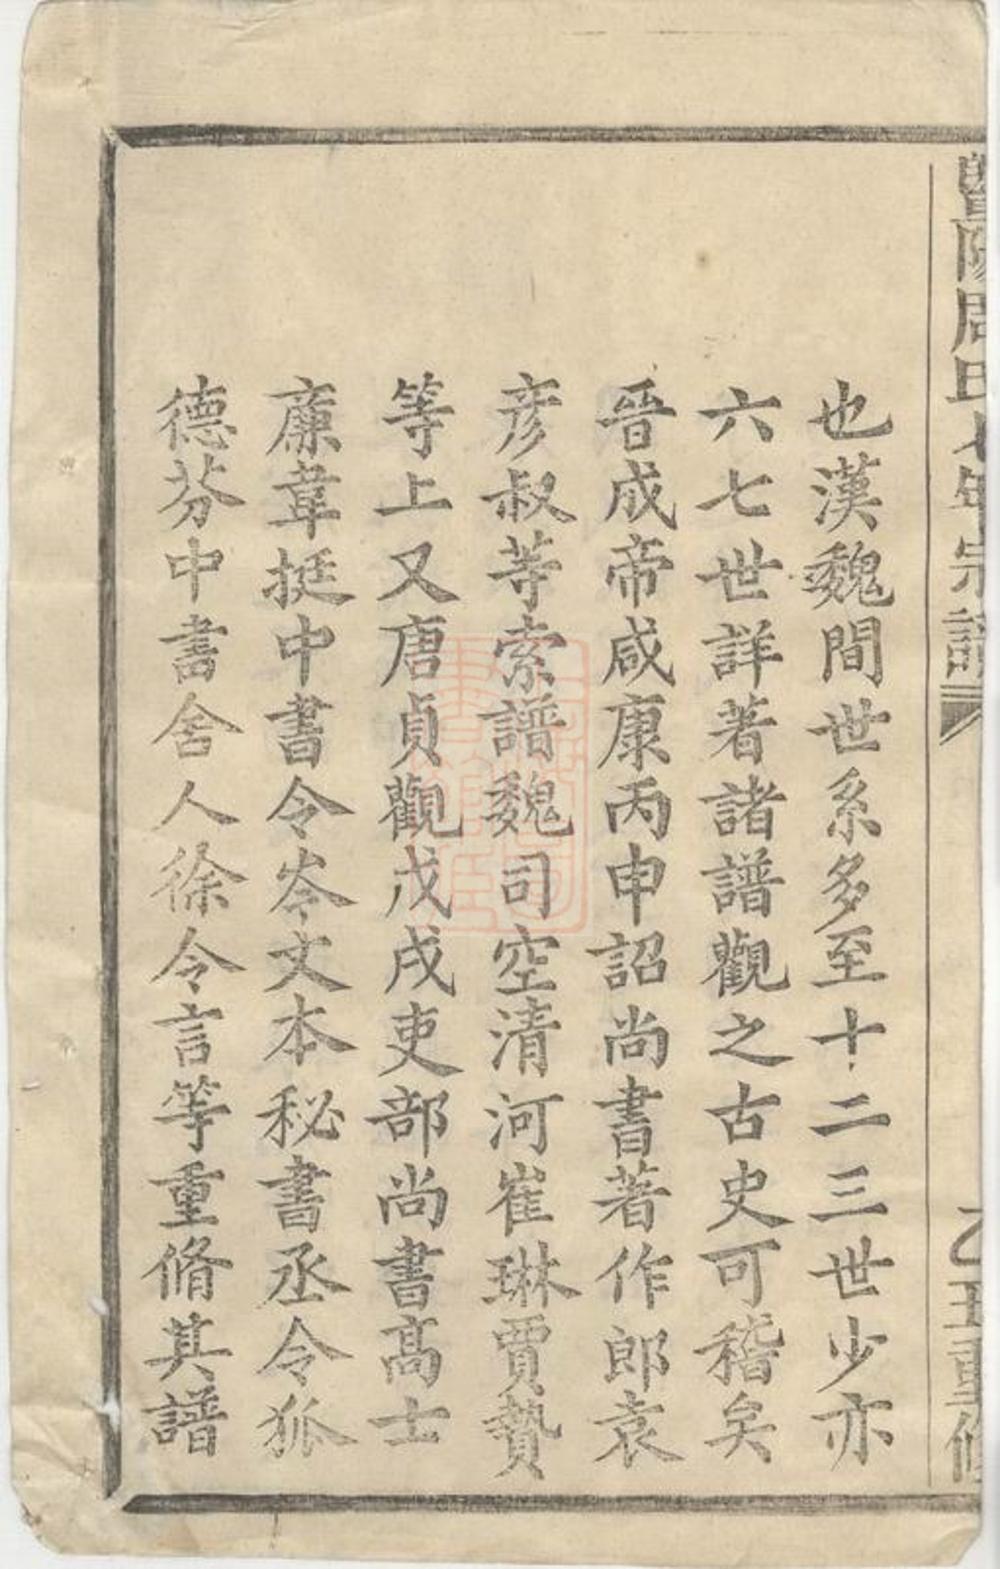 暨陽周氏 年宗譜 乙丑重修
也漢魏間世系多至十二三世少亦
六七世詳著諸譜觀之古史可稽矣
晉成帝咸康丙申詔尚書著作郎袁
彦叔等索譜魏司空清河崔琳賈贄
等上又唐貞觀戊戌吏部尚書高士
廉韋挺中書令岑文本秘書丞令狐
德芬中書舍人徐令言等重脩其譜